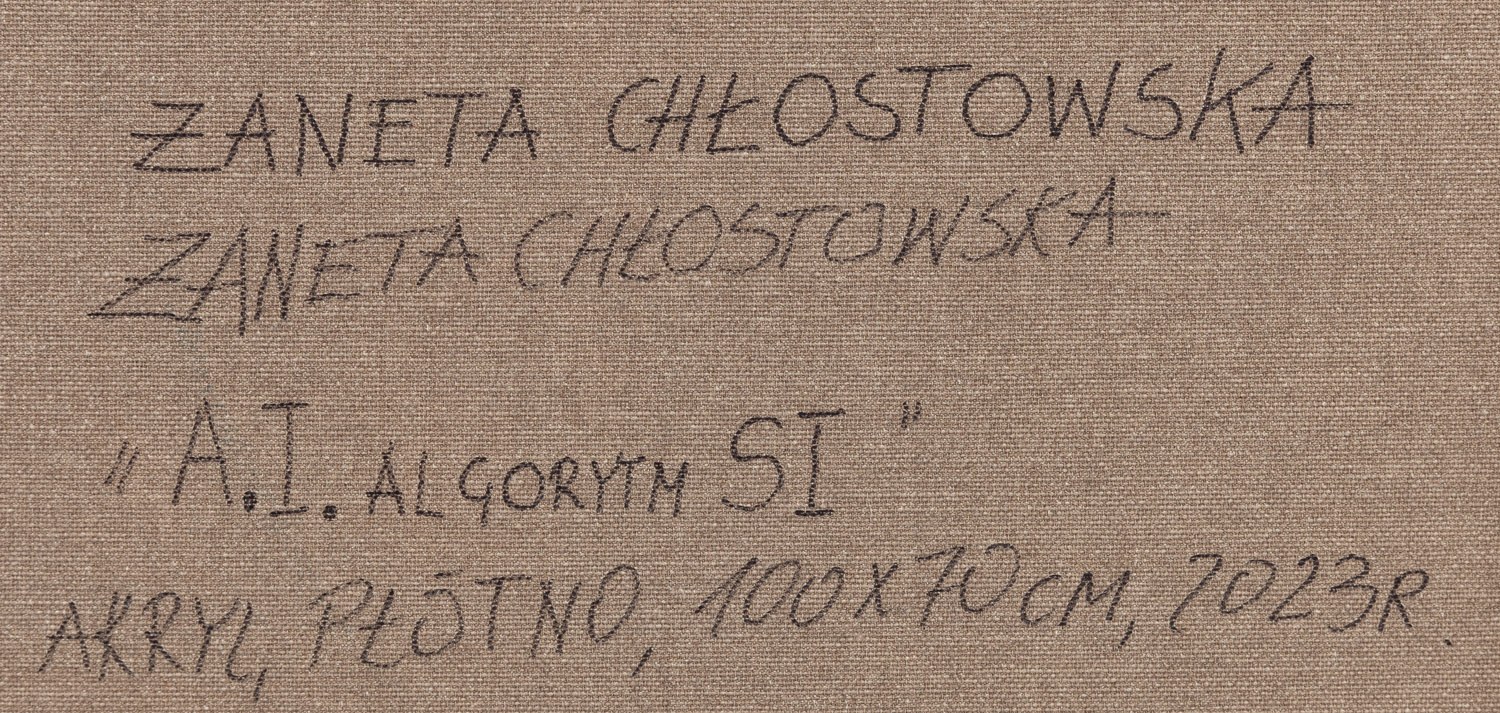 ŻANETA CHŁOSTOWSKA
ŻANETA CHŁOSTOWSKA
"A.I. ALGORYTM SI"
AKRYL, PŁÓTNO, 100X70CM, 2023R.